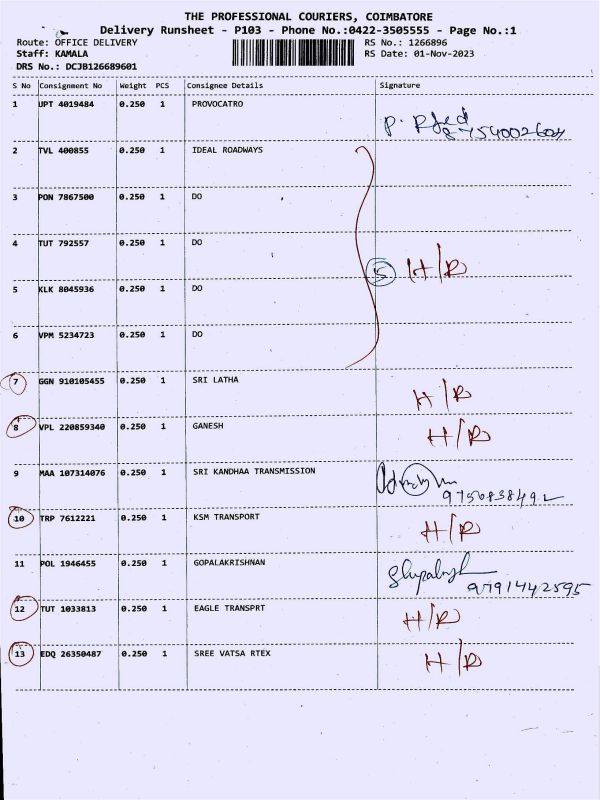 THE PROFESSIONAL COURIERS, COIMBATORE
Delivery Runsheet - P103 - Phone No.:0422-3505555 - Page No.:1
Route: OFFICE DELIVERY RS No.: 1266896
Staff: KAMALA RS Date: 01-Nov-2023
DRS No.: DCJB126689601
S No Consignment No Weight PCS Consignee Details Signature
1 UPT 4019484 0.250 1 PROVOCATRO
2 TVL 400855 0.250 1 IDEAL ROADWAYS
3 PON 7867500 0.250 1 DO
4 TUT 792557 0.250 1 DO
5 H/R
5 KLK 8045936 0.250 1 DO
6 VPM 5234723 0.250 1 DO
7 GGN 910105455 0.250 1 SRI LATHA H/R
8 VPL 220859340 0.250 1 GANESH H/R
9 MAA 107314076 0.250 1 SRI KANDHAA TRANSMISSION
10 TRP 7612221 0.250 1 KSM TRANSPORT H/R
11 POL 1946455 0.250 1 GOPALAKRISHNAN
9791442595
12 TUT 1033813 0.250 1 EAGLE TRANSPRT H/R
13 EDQ 26350487 0.250 1 SREE VATSA RTEX H/R